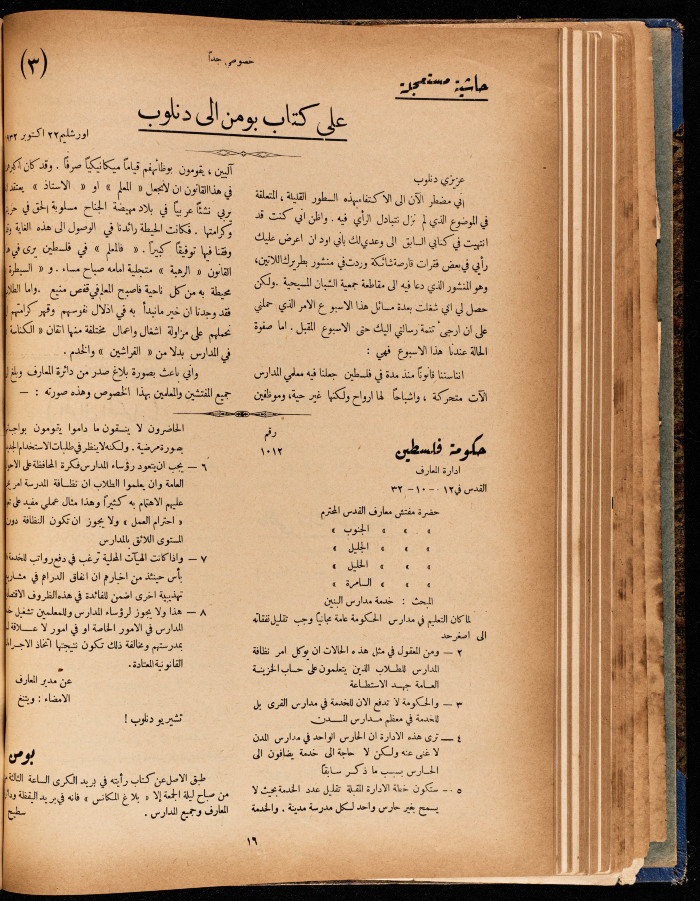 (٣)
خصوصي جداً
حاشية مستعجلة
على كتاب بومن الى دنلوب
اورشليم ٢٢ اكتوبر ٩٣٢
عزيزي دنلوب
اني مضطر الآن الى الاكتفاء بهذه السطور القليلة ، المتعلقة
في الموضوع الذي لم نزل نتبادل الرأي فيه . واظن اني كنت قد
انتهيت في كتابي السابق الى وعدي لك باني اود ان اعرض عليك
رأيي في بعض فقرات قارصة شائكة وردت في منشور بطريرك اللاتين ،
وهو المنشور الذي دعا فيه الى مقاطعة جمعية الشبان المسيحية . ولكن
حصل لي اني شغلت بعدة مسائل هذا الاسبوع الامر الذي حملني
على ان ارجئ تتمة رسالتي اليك حتى الاسبوع المقبل . اما صفوة
الحالة عندنا هذا الاسبوع فهي :
اننا سننا قانوناً منذ مدة في فلسطين جعلنا فيه معلمي المدارس
آلات متحركة ، واشباحاً لها ارواح ولكنها غير حية ، وموظفين
آليين ، يقومون بوظائفهم قياماً ميكانيكياً صرفاً . وقد كان اكبر
في هذا القانون ان لا نجعل « المعلم » او « الاستاذ » يعتقد
يربي نشئاً عربياً في بلاد مهيضة الجناح مسلوبة الحق في حر
وكرامتها . فكانت الحيطة رائدنا في الوصول الى هذه الغاية
وفقنا فيها توفيقاً كبيراً . « فالمعلم » في فلسطين يرى في
القانون « الرهبة » متجلية امامه صباح مساء . و « السيطرة
محيطة به من كل ناحية فاصبح المعلم في قفص منيع . واما الطلاب
فقد وجدنا ان خير ما نبدأ به في اذلال نفوسهم وقهر كرامتهم
نحملهم على مزاولة اشغال واعمال مختلفة منها اتقان « الكناسة
في المدارس بدلا من « الفراشين » والخدم .
واني باعث بصورة بلاغ صدر من دائرة المعارف وبلغ
جميع المفتشين والمعلمين بهذا الخصوص وهذه صورته : —
رقم
١٠١٢
حكومة فلسطين
ادارة المعارف
القدس في ١٢ -- ١٠ - ٣٢
حضرة مفتش معارف القدس المحترم
« « « الجنوب «
« « « الجليل «
« « « الخليل «
« « « السامرة «
المبحث : خدمة مدارس البنين
لما كان التعليم في مدارس الحكومة عامة مجانياً وجب تقليل نفقاته
الى اصغر حد
٢ — ومن المعقول في مثل هذه الحالات ان يوكل امر نظافة
المدارس للطلاب الذين يتعلمون على حساب الخزينة
العامة جهد الاستطاعة
٣ — والحكومة لا تدفع الان للخدمة في مدارس القرى بل
للخدمة في معظم مدارس المدن
٤ — ترى هذه الادارة ان الحارس الواحد في مدارس المدن
لا غنى عنه ولكن لا حاجة الى خدمة يضافون الى
الحارس بسبب ما ذكر سابقاً
٥ — ستكون خطة الادارة المقبلة تقليل عدد الخدمة بحيث لا
يسمح بغير حارس واحد لكل مدرسة مدينة . والخدمة
الحاضرون لا ينسقون ما داموا يقومون
بصورة مرضية . ولكنه لا ينظر في طلبات الاستخدام
٦ — يجب ان يتعود رؤساء المدارس فكرة المحافظة على
العامة وان يعلموا الطلاب ان نظافة المدرسة امر
عليهم الاهتمام به كثيراً وهذا مثال عملي مفيد على
« احترام العمل » ولا يجوز ان تكون النظافة دون
المستوى اللائق بالمدارس
٧ — واذا كانت الهيآت المحلية ترغب في دفع رواتب للخدمة
بأس حينئذ من اخبارهم ان انفاق الدراهم في
تهذيبية اخرى اضمن للفائدة في هذه الظروف
٨ — هذا ولا يجوز لرؤساء المدارس وللمعلمين تشغيل
المدارس في الامور الخاصة او في امور لا علاقة
بمدرستهم ومخالفة ذلك تكون نتيجتها اتخاذ
القانونية المعتادة .
عن مدير المعارف
الامضاء : ويتنغ
تشيريو دنلوب !
بومن
طبق الاصل عن كتاب رأيته في بريد الكرى الساعة الثالثة
من صباح ليلة الجمعة إلا « بلاغ المكانس » فانه في بريد اليقظة
المعارف وجميع المدارس . سطيح
١٦